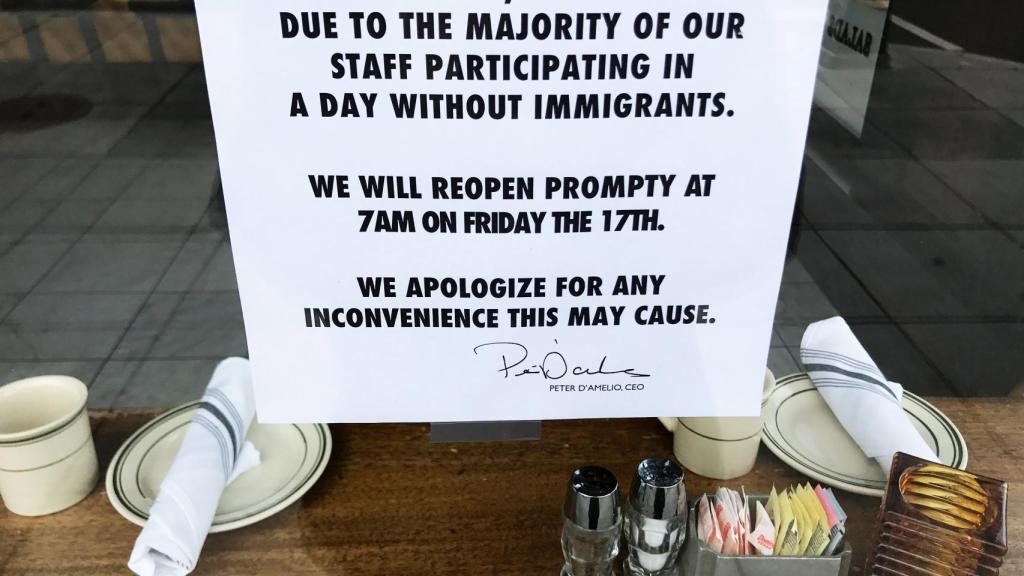 DUE TO THE MAJORITY OF OUR
STAFF PARTICIPATING IN
A DAY WITHOUT IMMIGRANTS.
WE WILL REOPEN PROMPTY AT
7AM ON FRIDAY THE 17TH.
WE APOLOGIZE FOR ANY
INCONVENIENCE THIS MAY CAUSE.
PETER D'AMELIO, CEO
SALADS